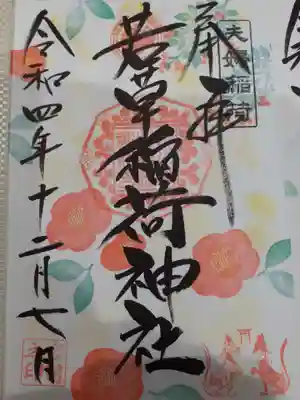 夫婦稲荷
奉拝
若草稲荷神社
令和四年十二月七日